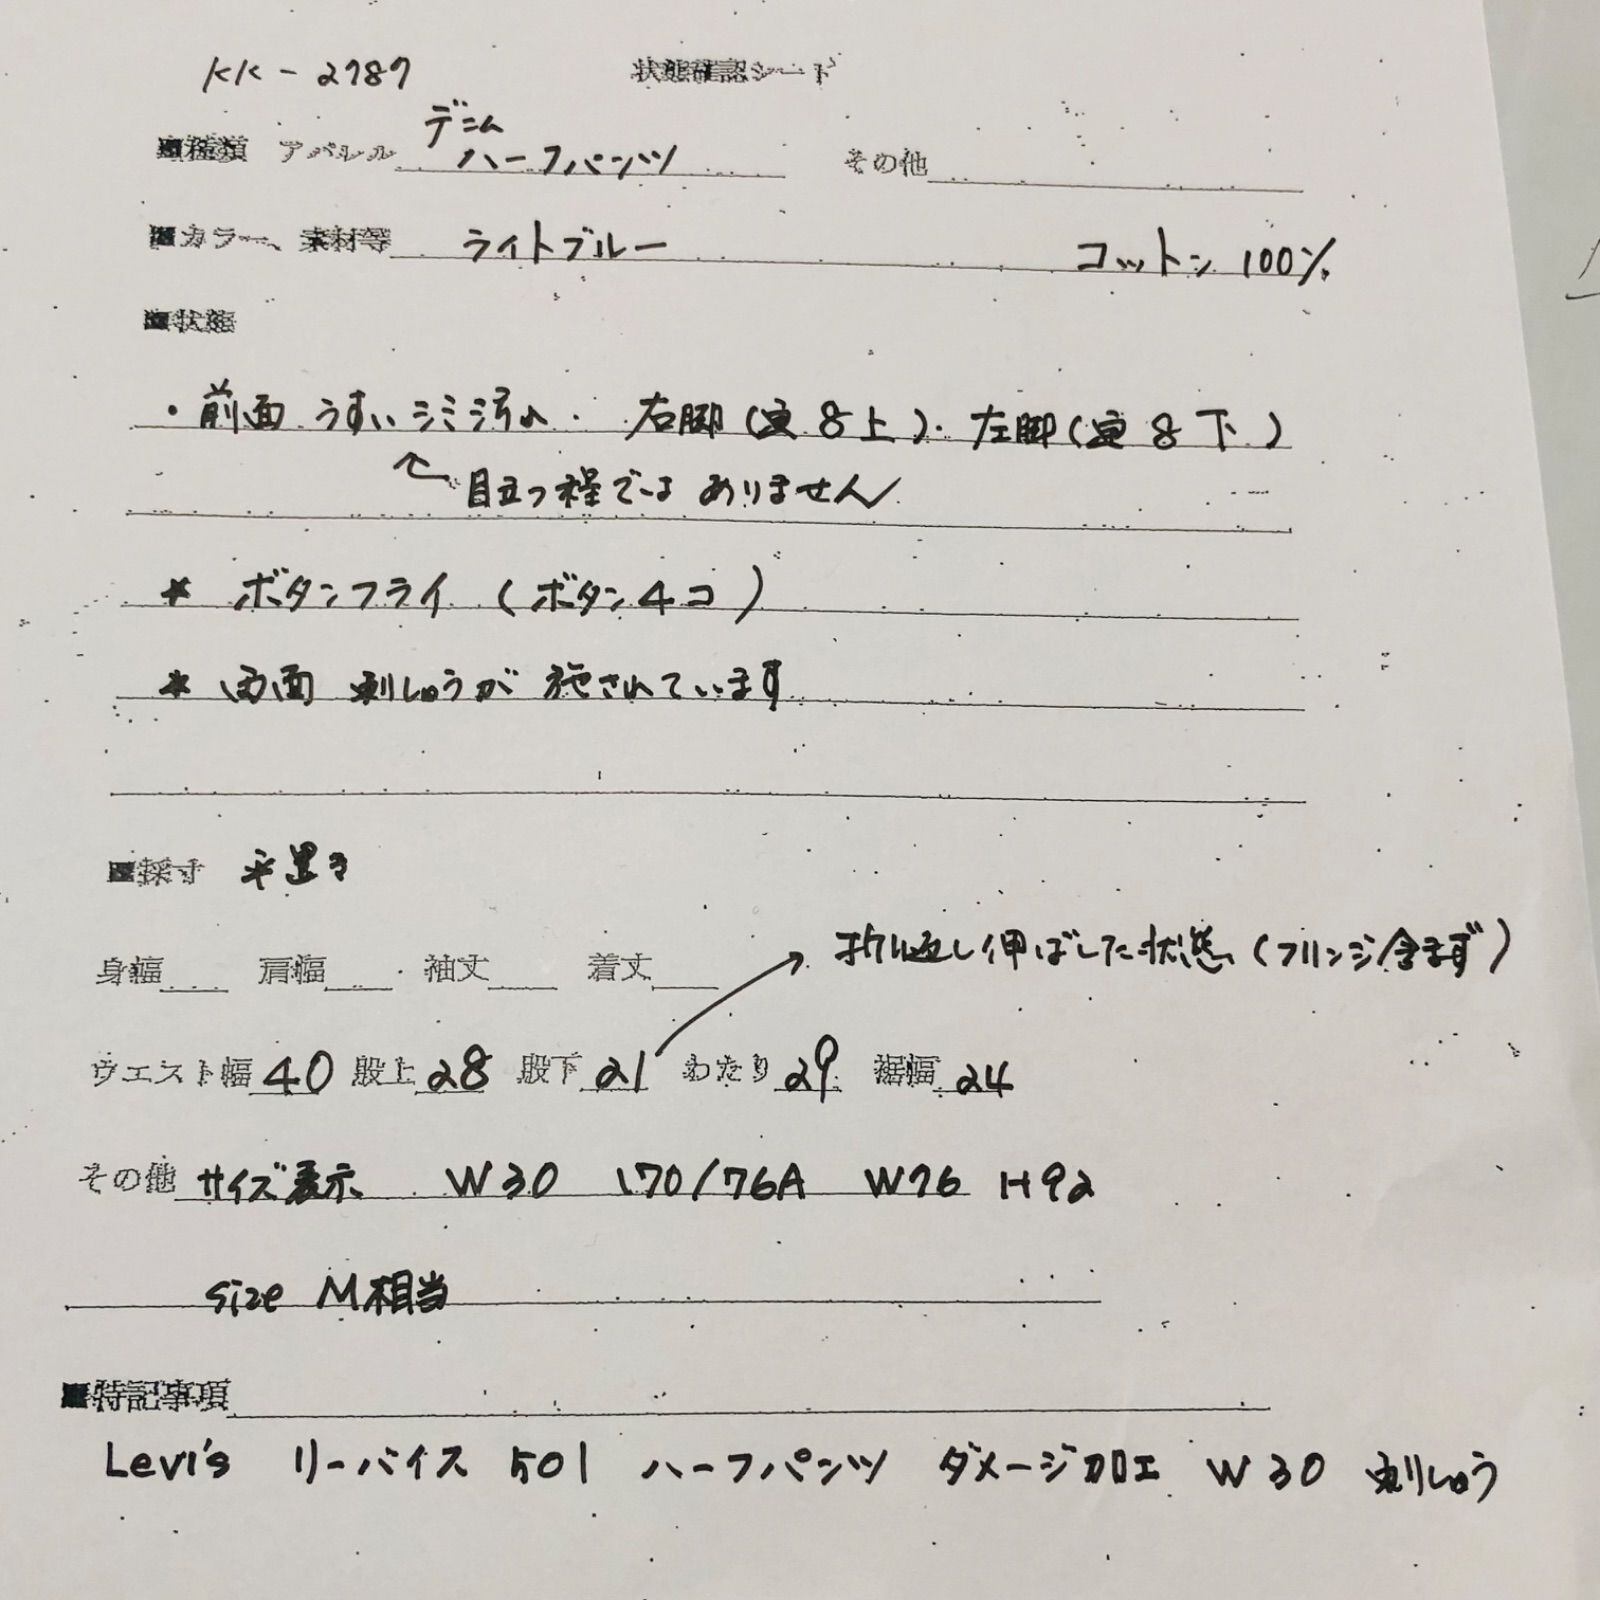 KK-2787 状態確認シート
デニム
■種類 アパレル ハーフパンツ その他
■カラー、素材等 ライトブルー コットン 100%
■状態
・前面 うすいシミ汚れ・ 右脚(写8上)・左脚(写8下)
↖目立つ程ではありません
* ボタンフライ (ボタン4コ)
* 両面 刺しゅうが施されています
■採寸 平置き
折り返し伸ばした状態(フリンジ含まず)
身幅 肩幅 袖丈 着丈
ウエスト幅 40 股上 28 股下 21 わたり 29 裾幅 24
その他 サイズ表示 W30 170/76A W76 H92
size M相当
■特記事項
Levi's リーバイス 501 ハーフパンツ ダメージ加工 W30 刺しゅう